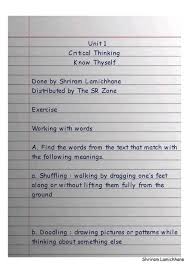 Unit 1
Critical Thinking
Know Thyself
Done by Shriram Lamichhane
Distributed by The SR Zone
Exercise
Working with words
A. Find the words from the text that match with
the following meanings.
a. Shuffling : walking by dragging one's feet
along or without lifting them fully from the
ground
b. Doodling : drawing pictures or patterns while
thinking about something else
Shriram Lamichhane